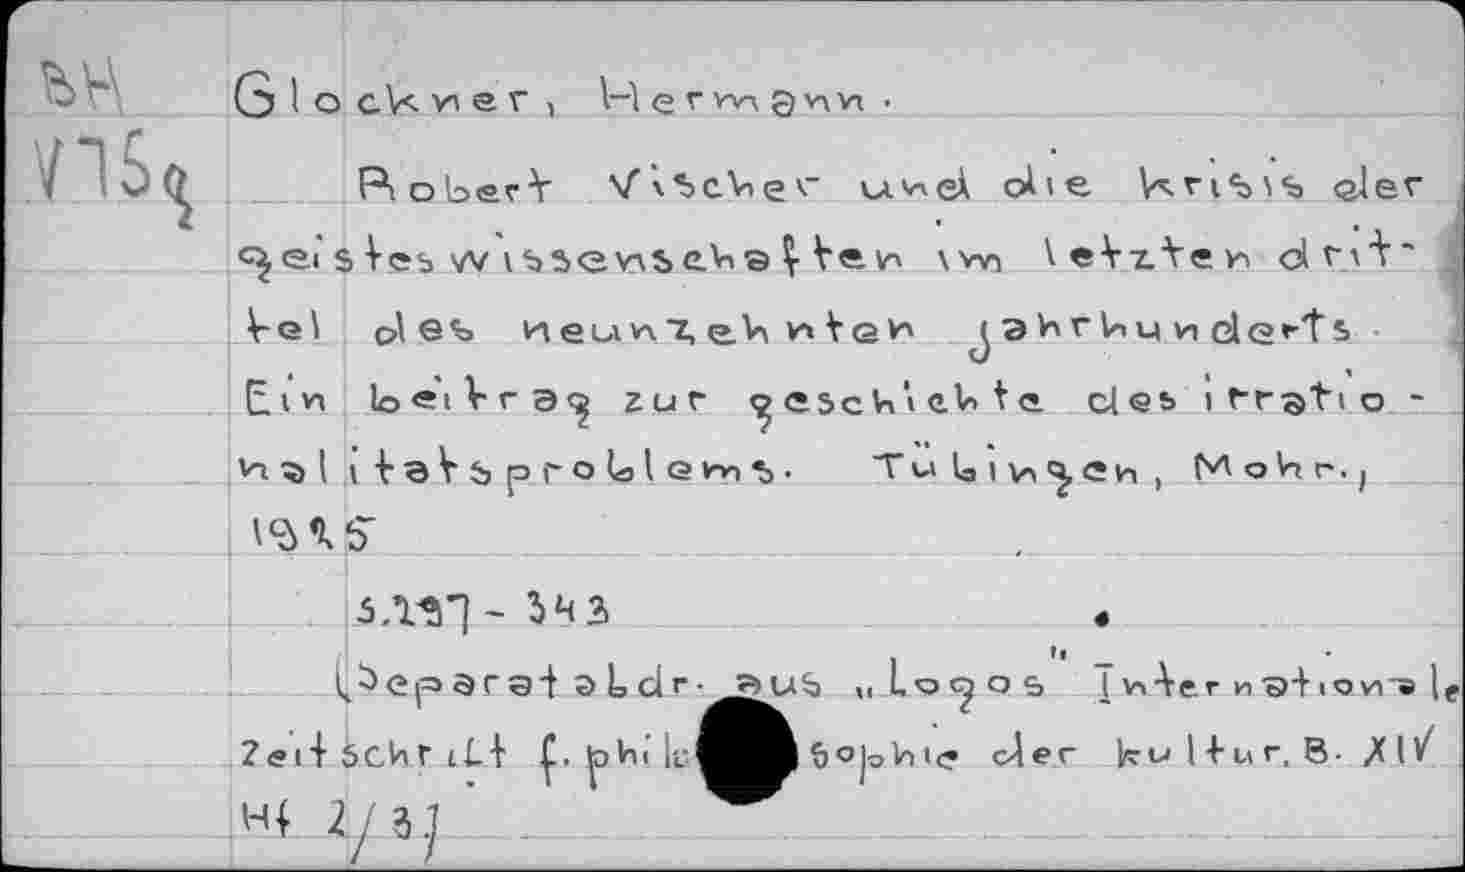 BH
V75g
Glockner, Hermann.
Robert Vischer und die krisis der
geisteswissenschaften im letzten drit-
tel des neunzehnten jahrhunderts
Ein beitrag zur geschichte des irratio-
nalitätsproblems. Tübingen, Mohr.,
1925
s.297-343
(Separatabdr. aus „Logos" Internationale
Zeitschrift f. philosophie der kultur. B. XIV
Hf 2/3.)